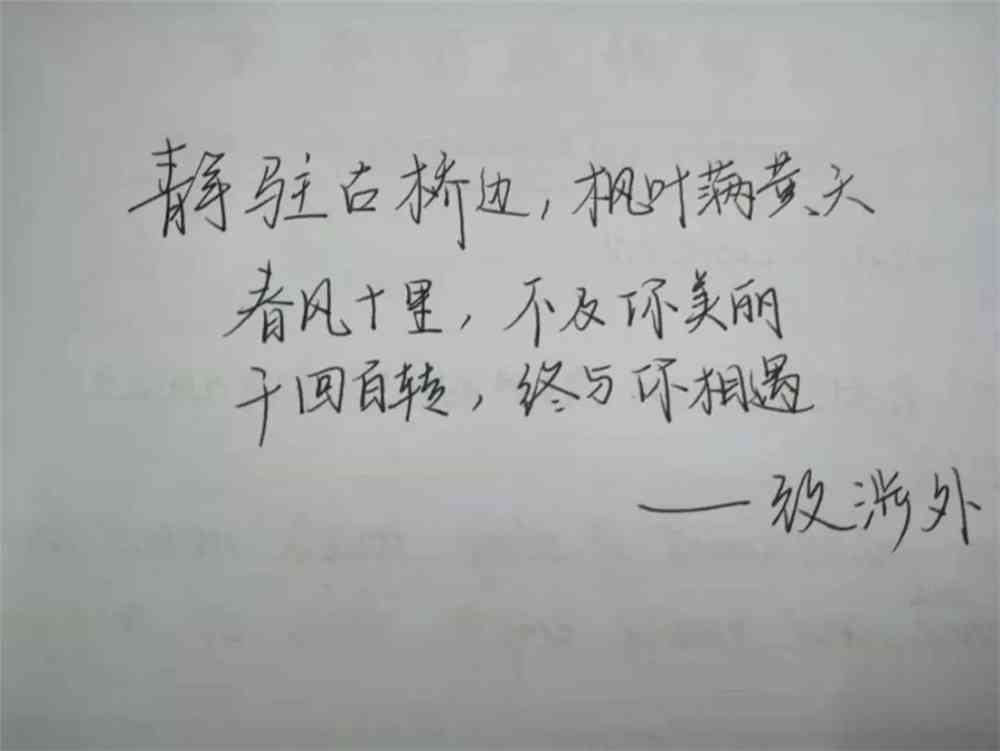 静驻古桥边,枫叶满黄天
春风十里,不及你美丽
千回百转,终与你相遇
——致涉外